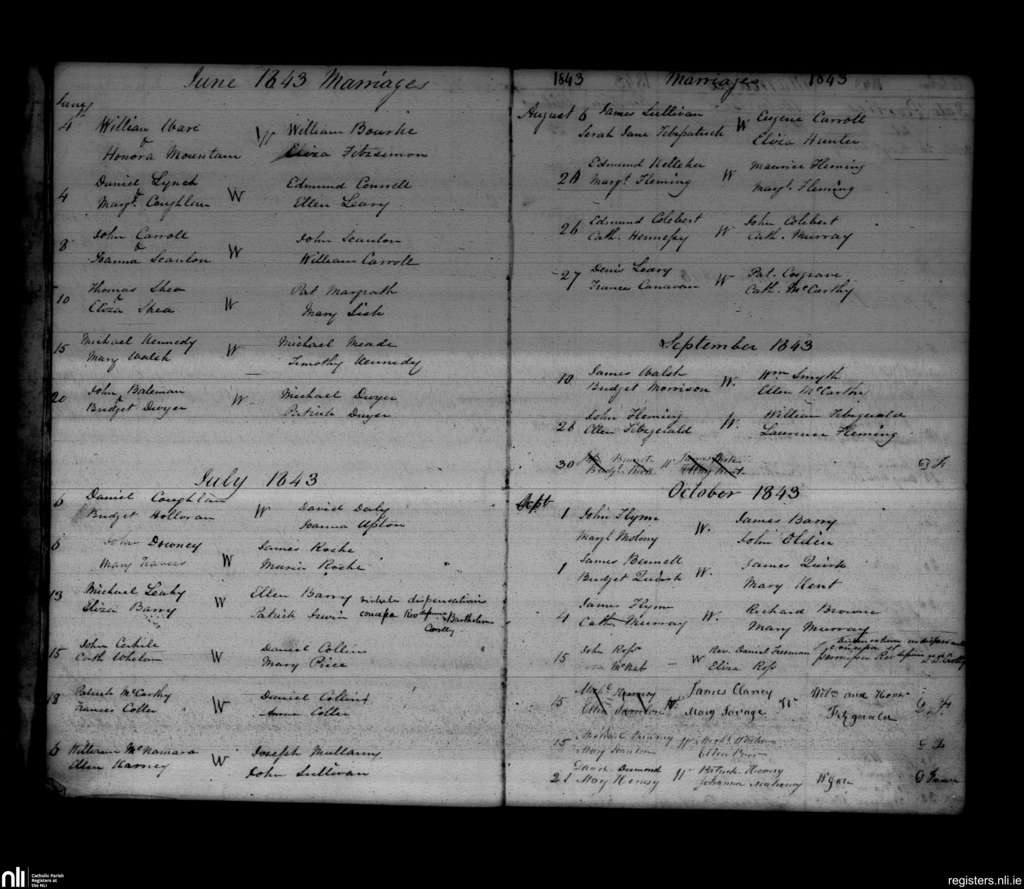 June 1843 Marriages
4 William Ware W William Bourke
& Honora Mountain Eliza Fitzsimon
4 Daniel Lynch W Edmund Connell
Margt. Coughlan Ellen Leary
8 John Carroll W John Scanlon
& Joanna Scanlon William Carroll
10 Thomas Shea W Pat Margrath
& Eliza Shea Mary
15 Michael Kennedy W Michael Meade
Mary Walsh Timothy Kennedy
20 John Bateman W Michael Dwyer
& Bridget Dwyer Patrick Dwyer
July 1843
6 Daniel Coughlan W David Daly
Bridget Holloran Joanna Upton
6 John Downey W James Roche
Mary Travers Maria Roche
13 Michael Leahy W Ellen Barry
Eliza Barry Patrick Irwin
15 John W Daniel Collin
Cath Whelan Mary Price
18 Patrick McCarthy W Daniel Collins
Frances Cotter Anne Cotter
6 William McNamara W Joseph Mullanny
Ellen Karney John Sullivan
1843 Marriages 1843
August 6 James Sullivan W Eugene Carroll
Sarah Jane Fitzpatrick Eliza Hunter
Edmund Kelleher W Maurice Fleming
Margt. Fleming Margt. Fleming
26 Edmund Colebert W John Colebert
Cath. Hennessy Cath. Murray
27 Denis Leary W Pat. Cosgrave
France Canavan Cath. McCarthy
September 1843
10 James Walsh W. Wm Smyth
Bridget Morrison Ellen McCartin
28 John Fleming W. William Fitzgerald
Ellen Fitzgerald Laurence Fleming
30
October 1843
Sept 1 John Flynn W. James Barry
Margt Molony John Olden
1 James Bennett W. James Quirk
Bridget Quirk Mary Kent
4 James Flynn W. Richard Browne
Cath Murray Mary Murray
15 John Ross W Rev. Daniel Freeman
McNab Eliza Ross
15 James Clancy
Mary Savage Fitzgerald
15
21 David Desmond W Patrick
Mary Johanna Mahony
nli
Catholic Parish
Registers at
the NLI
registers.nli.ie